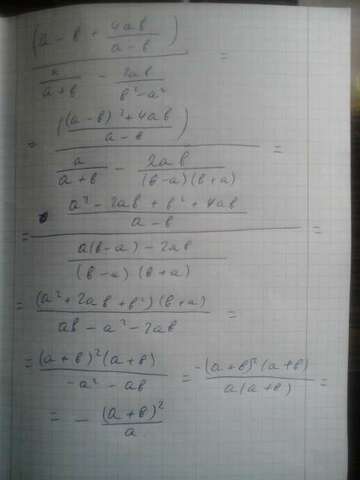 (a - b + 4ab/(a - b)) / (a/(a+b) - 2ab/(b² - a²)) =
= ((a - b)² + 4ab)/(a - b) / (a/(a+b) - 2ab/((b-a)(b+a))) =
= (a² - 2ab + b² + 4ab)/(a - b) / (a(b-a) - 2ab)/((b-a)(b+a)) =
= (a² + 2ab + b²)(b+a) / (ab - a² - 2ab) =
= (a+b)²(a+b) / (-a² - ab) = -(a+b)²(a+b) / a(a+b) =
= - (a+b)²/a